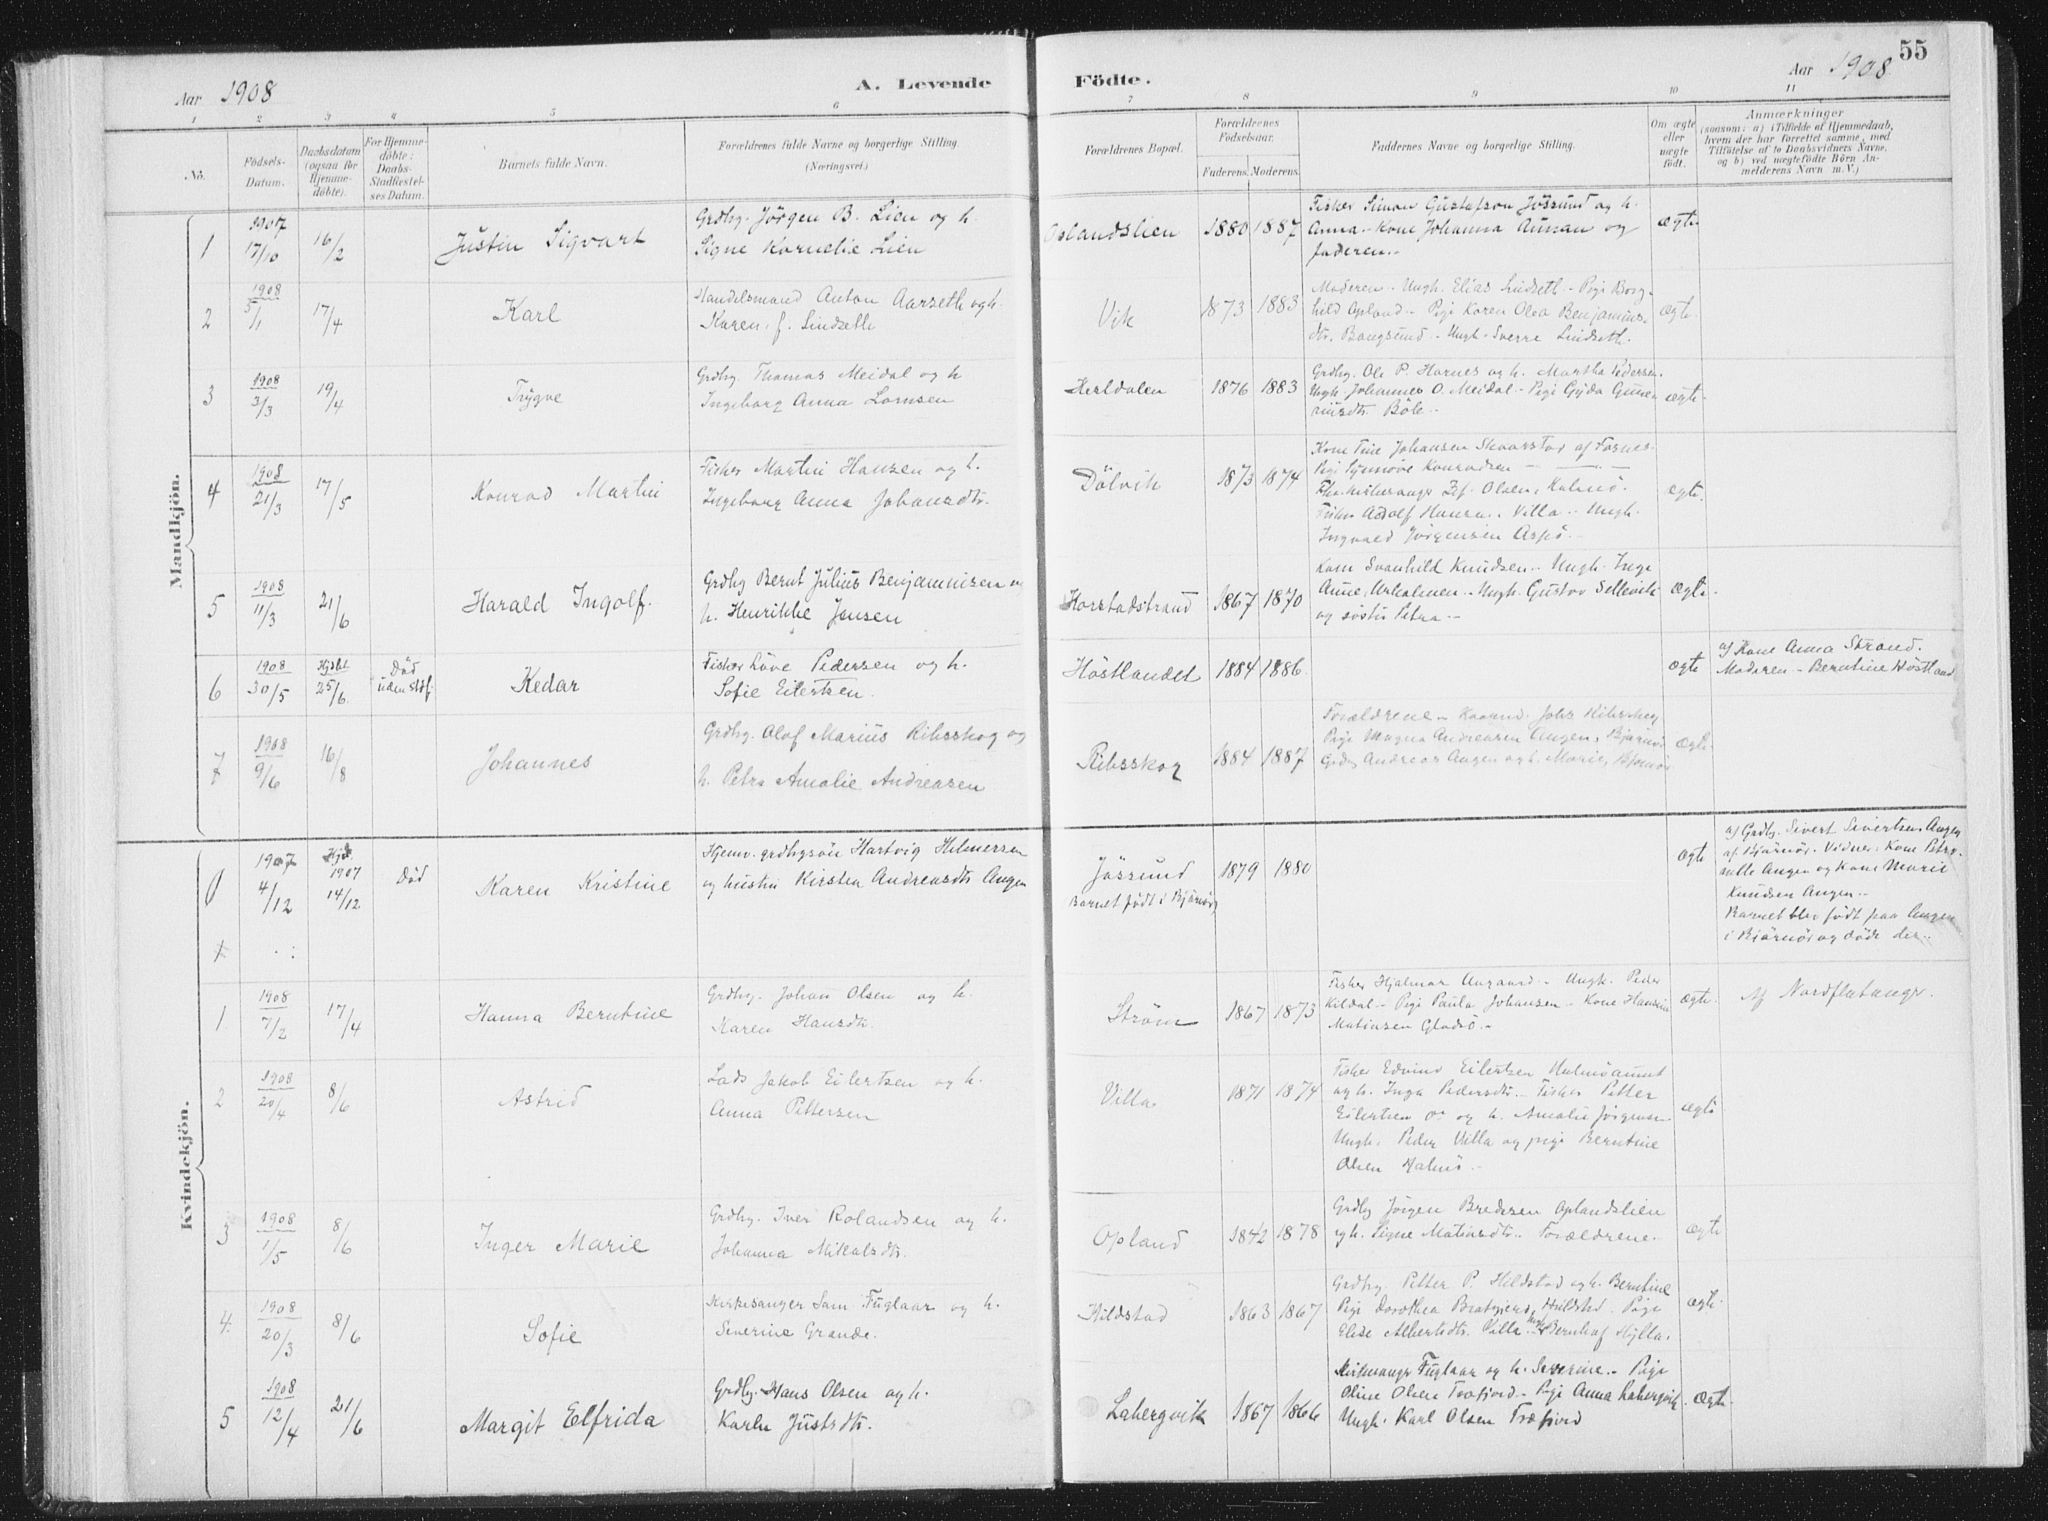 55
Aar 1908
A. Levende Födte.
Aar 1908
1 2 3 4 5 6 7 8 9 10 11
No.
Födsels-Datum.
Daabsdatum (ogsaa for Hjemme-döbte).
For Hjemme-döbte: Daabs-Stadfæstel-ses Datum.
Barnets fulde Navn.
Forældrenes fulde Navne og borgerlige Stilling.
(Næringsvei)
Forældrenes Bopæl.
Forældrenes Födselsaar.
Faderens. Moderens.
Faddernes Navne og borgerlige Stilling.
Om ægte eller uægte födt.
Anmærkninger
(saasom: a) i Tilfælde af Hjemmedaab,
hvem der har forrettet samme, med
Tilföielse af to Daabsvidners Navne,
og b) ved uægtefödte Börn An-
melderens Navn m. V.)
Mandkjön.
1 1907 17/10 16/2 Justin Sigvart
Grdbg. Jörgen B. Lien og h.
Signe Kornelie Lien
Oplandslien 1880 1887
Fisker Simon Gustafson Jössund og h.
Anna - Kone Johanna Aunan og
faderen.
ægte
2 1908 5/1 17/4 Karl
Handelsmand Anton Aarseth og h.
Karen f. Lindseth
Vik 1873 1883
Moderen - Ungk. Elias Lindseth - Pige Borg-
hild Opland - Pige Karen Olea Benjamins-
dtr. Bangsund - Ungk. Sverre Lindseth.
ægte
3 1908 3/3 19/4 Trygve
Grdbg. Thomas Meidal og h
Ingeborg Anna Lornsen
Herldalen 1876 1883
Grdbg. Ole P. Hornes og h. Martha Pedersen.
Ungk. Johannes O. Meidal - Pige Gyda
Böle
ægte
4 1908 21/3 17/5 Konrad Martin
Fisker Martin Hansen og h.
Ingeborg Anna Johansdtr.
Dölvik 1873 1874
Kone Tine Johansen Skaarstad af Fosnes.
Pige Synnöve Konradsen
Olsen, Kalnö.
Fisker Adolf Hansen, Villa - Ungk.
Ingvald Jörgensen Aspö.
ægte
5 1908 11/3 21/6 Harald Ingolf.
Grdbg Bernt Julius Benjaminsen og
h. Henrikke Jensen
Horstadstrand 1867 1870
Kone Svanhild Knudsen - Ungk. Inge
Aune, - Ungk. Gustav Settevik
og söster Petra
ægte
6 1908 30/5 Hjdbt 25/6 Död uden stdf. Kedar
Fisker Löve Pedersen og h.
Sofie Eilertsen.
Höstlandet 1884 1886
ægte
af Kone Anna Strand.
Moderen - Berntine Höstland
7 1908 9/6 16/8 Johannes
Grdbg. Olaf Marius Ribsskog og
h. Petra Amalie Andreasen
Ribsskog 1884 1887
Forældrene - Johs Ribsskog
Pige Magna Andreasen Angen, Bjørnör
Grdbg Andreas Angen og h. Marie, Bjørnör
ægte
Kvindekjön.
1907 4/12 Hjdb. 1907 14/12 Död Karen Kristine
Hjemv. grdbgsön Hartvig Hilmersen
og hustru Kirsten Andreasdtr Angen
Jössund
Barnet födt i Bjørnör
1879 1880
ægte
af Grdbg. Sivert Sivertsen Angen
af Bjørnör. Vidner: Kone Petro-
nelle Angen og Kone Marie
Knudsen Angen.
Barnet blev födt paa Angen
i Bjørnör og döde der.
1 1908 7/2 17/4 Hanna Berntine
Grdbg. Johan Olsen og h.
Karen Hansdtr.
Ström 1867 1873
Fisker Hjalmar Aagaard - Ungk. Peder
Kildal - Pige Paula Johansen - Kone Hansine
Matiasen Gladsö.
ægte
Af Nordflatanger.
2 1908 20/4 8/6 Astrid
Lods Jakob Eilertsen og h.
Anna Pettersen
Villa 1871 1874
Fisker Edvind Eilertsen
og h. Inga Pedersdtr. - Fisker Petter
Eilertsen og h. Amalie Jörgensen
Ungk. Peder Villa og pige Berntine
Olsen Halnö.
ægte
3 1908 1/5 8/6 Inger Marie
Grdbg. Iver Rolandsen og h.
Johanna Mikalsdtr.
Opland 1842 1878
Grdbg Jörgen Bredesen Oplandslien
og h. Signe Matiasdtr. - Forældrene.
ægte
4. 1908 20/3 8/6 Sofie
Kirkesanger Sam. Fuglaar og h.
Severine Grande.
Hildstad 1863 1867
Grdbg. Petter P. Hildstad og h. Berntine
Pige Dorothea Hildstad. Pige
Elise Albertsdtr. Villa - Ungk Bernhof Hylla.
ægte
5 1908 12/4 21/6 Margit Elfrida
Grdbg. Hans Olsen og h.
Karen Justsdtr.
Labergvik 1867 1866
Kirkesanger Fuglaar og h. Severine - Pige
Oline Olsen Træfjord - Pige Anna Labergvik.
Ungk. Karl Olsen Træfjord
ægte